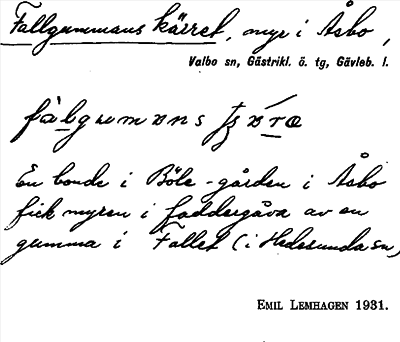 Fallgummans kärret, myr i Åsbo,
Valbo sn, Gästrikl. ö. tg, Gävleb. l.
En bonde i Böle-gården i Åsbo
fick myren i faddergåva av en
gumma i Fallet (i Hedesunda sn)
EMIL LEMHAGEN 1931.